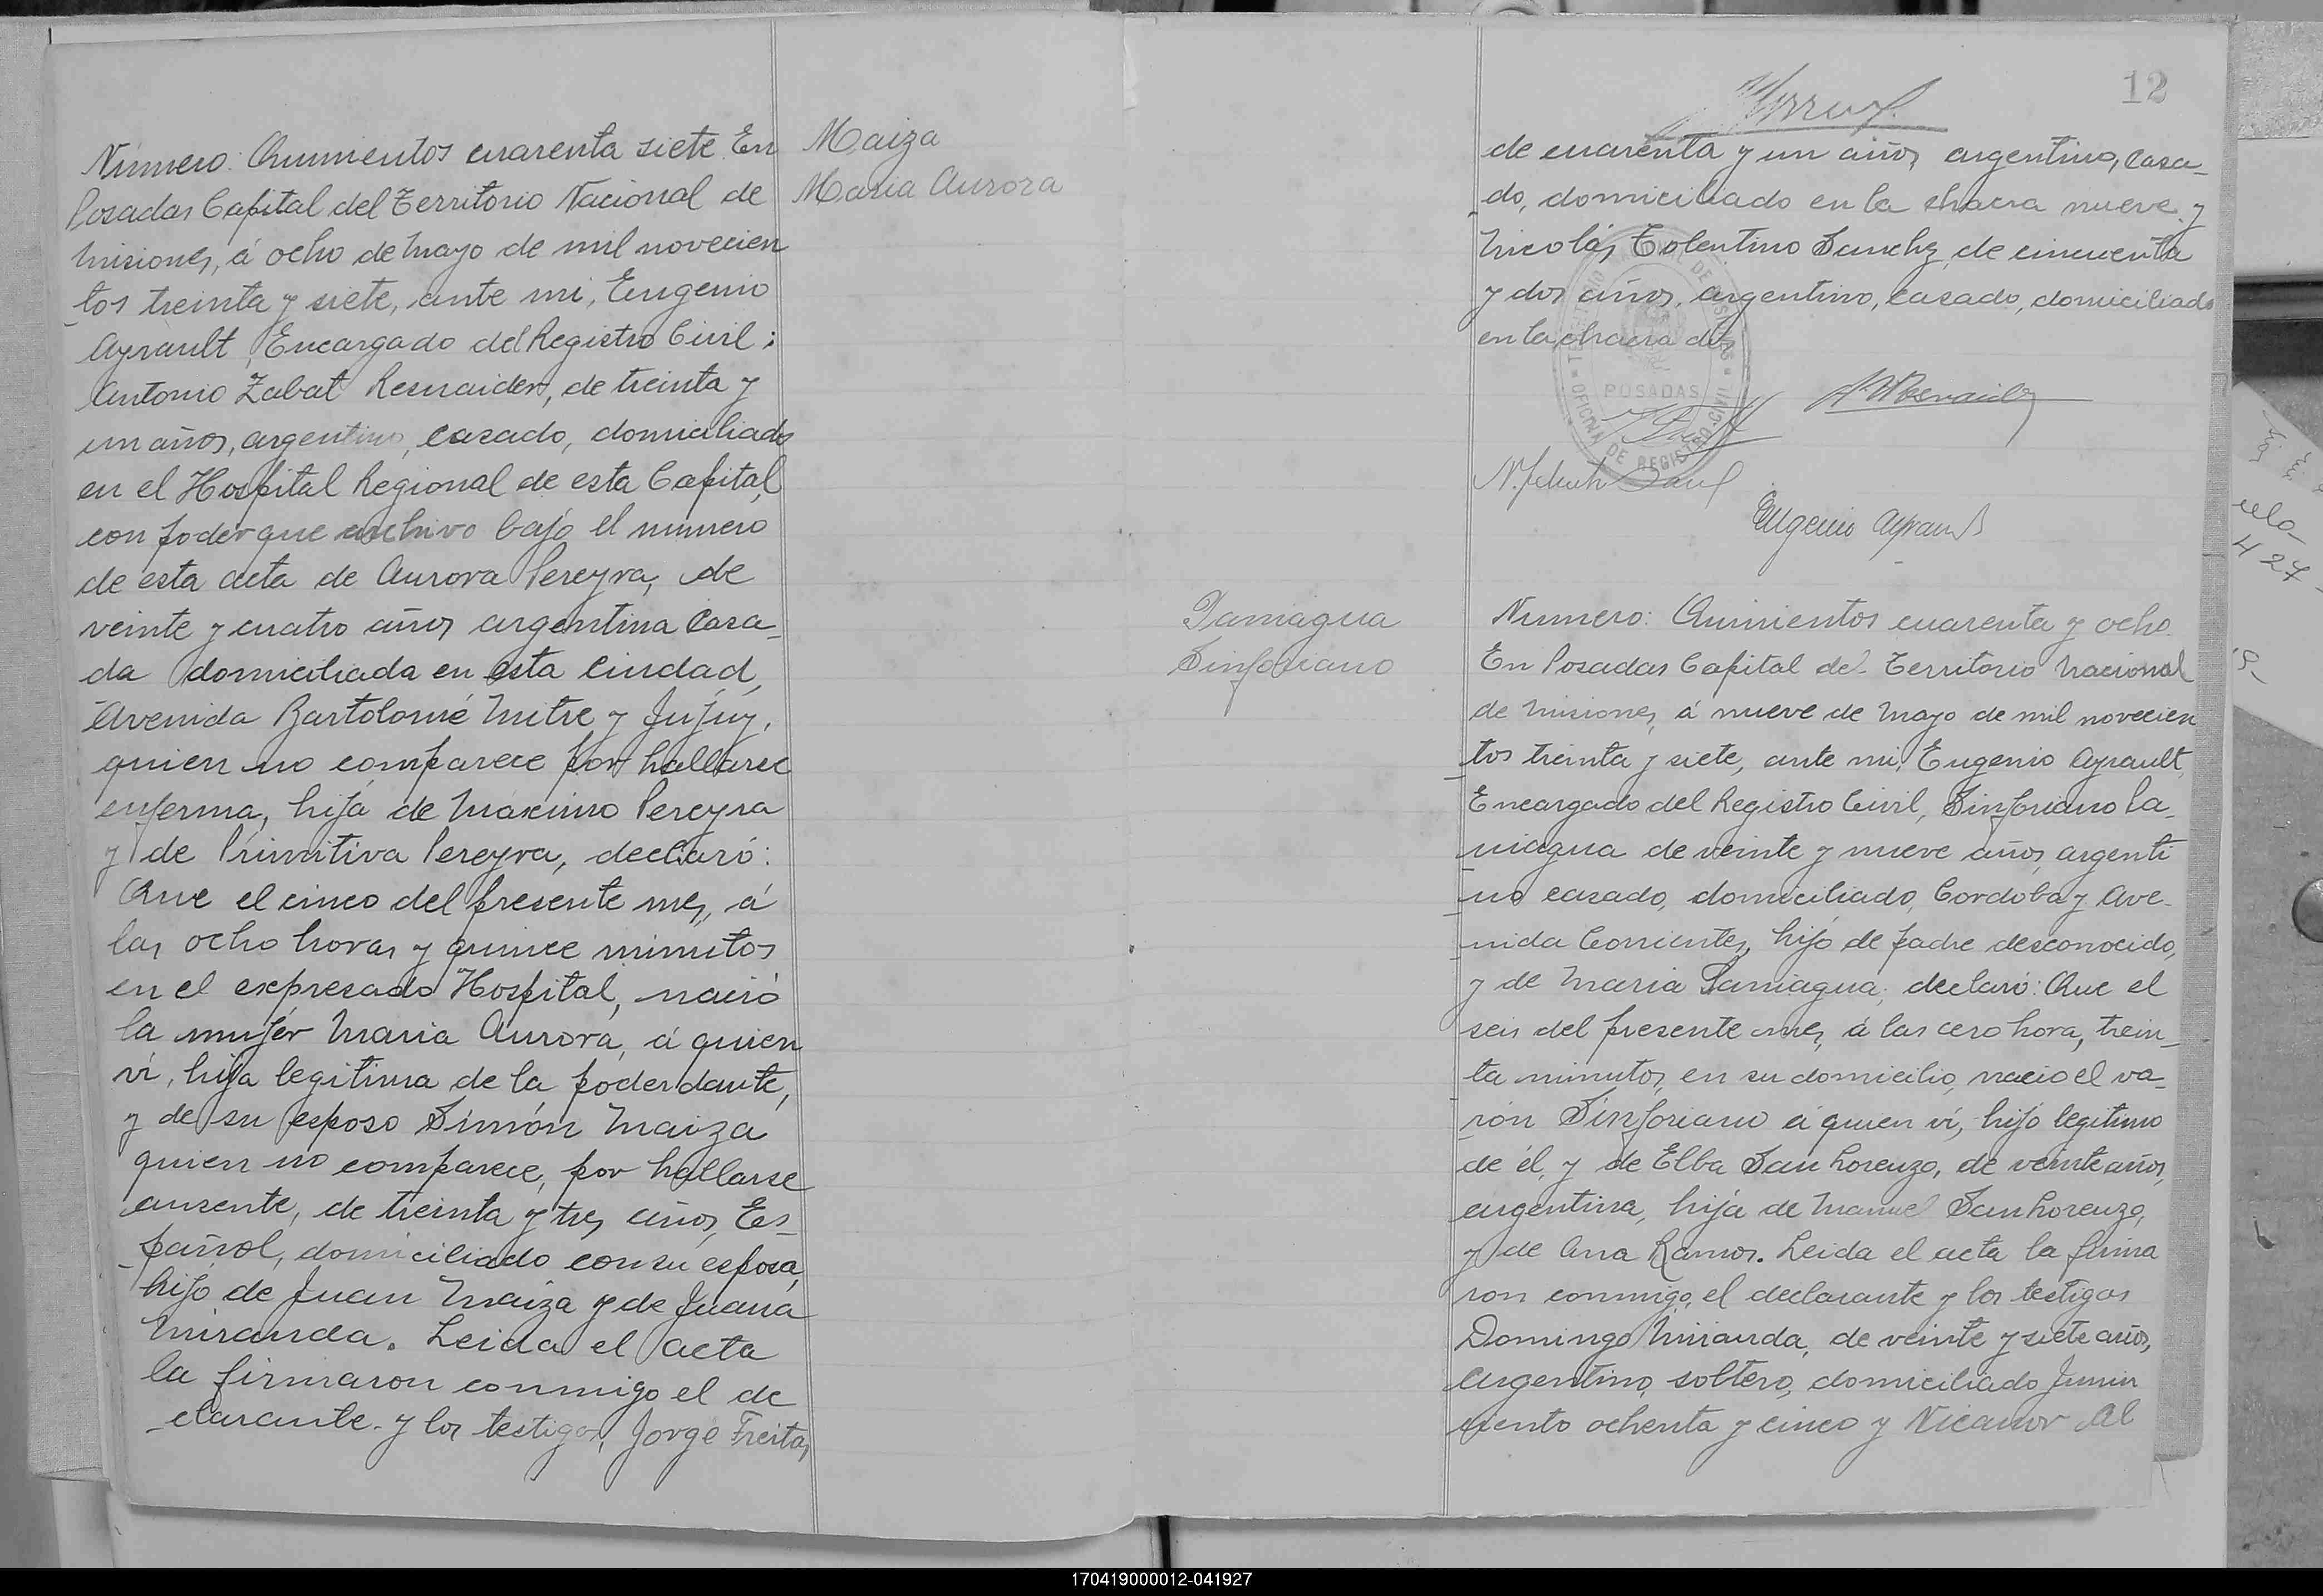 Número: Quinientos cuarenta siete. En
Posadas Capital del Territorio Nacional de
Misiones, á ocho de Mayo de mil novecien
tos treinta y siete, ante mi, Eugenio
Ayrault, Encargado del Registro Civil;
Antonio Zabat Resnaider, de treinta y
un años, argentino, casado, domiciliado
en el Hospital Regional de esta Capital,
con poder que archivo bajo el número
de esta acta de Aurora Pereyra, de
veinte y cuatro años argentina Casa-
da domiciliada en esta Ciudad,
Avenida Bartolomé Mitre y Jujuy,
quien no comparece por hallarse
enferma, hija de Máximo Pereyra
y de Primitiva Pereyra, declaró:
Que el cinco del presente mes, á
las ocho horas y quince minutos
en el expresado Hospital, nació
la mujér Maria Aurora, á quien
ví, hija legitima de la poderdante,
y de su esposo Simón Maiza
quien no comparece, por hallarse
ausente, de treinta y tres años, Es-
pañol, domiciliado con su esposa,
hijo de Juan Maiza y de Juana
Miranda. Leida el acta
la firmaron conmigo el de
clarante y los testigos, Jorge Freitas,
Maiza
Maria Aurora
12
de cuarenta y un años argentino, Casa-
do, domiciliado en la chacra nueve y
Nicolás Tolentino Sanchz, de cincuenta
y dos años, argentino, casado, domiciliado
en la chacra dos
POSADAS
OFICINA DE REGISTRO CIVIL
Eugenio Ayrault
Paniagua
Sinforiano
Número: Quinientos cuarenta y ocho.
En Posadas Capital del Territorio Nacional
de Misiones, á nueve de Mayo de mil novecien
tos treinta y siete, ante mi, Eugenio Ayrault,
Encargado del Registro Civil, Sinforiano Pa-
niagua de veinte y nueve años, argenti
no casado, domiciliado, Cordoba y Ave-
nida Corrientes, hijo de padre desconocido,
y de Maria Paniagua, declaró: Que el
seis del presente mes, á las cero hora, trein-
ta minutos, en su domicilio, nacio el va-
rón Sinforiano á quien ví, hijo legitimo
de él, y de Elba San Lorenzo, de veinte años,
argentina, hija de Manuel San Lorenzo,
y de Ana Ramos. Leida el acta la firma
ron conmigo, el declarante y los testigos
Domingo Miranda, de veinte y siete años,
Argentino, soltero, domiciliado Junin
ciento ochenta y cinco y Nicanor Al
ulo-
427
170419000012-041927